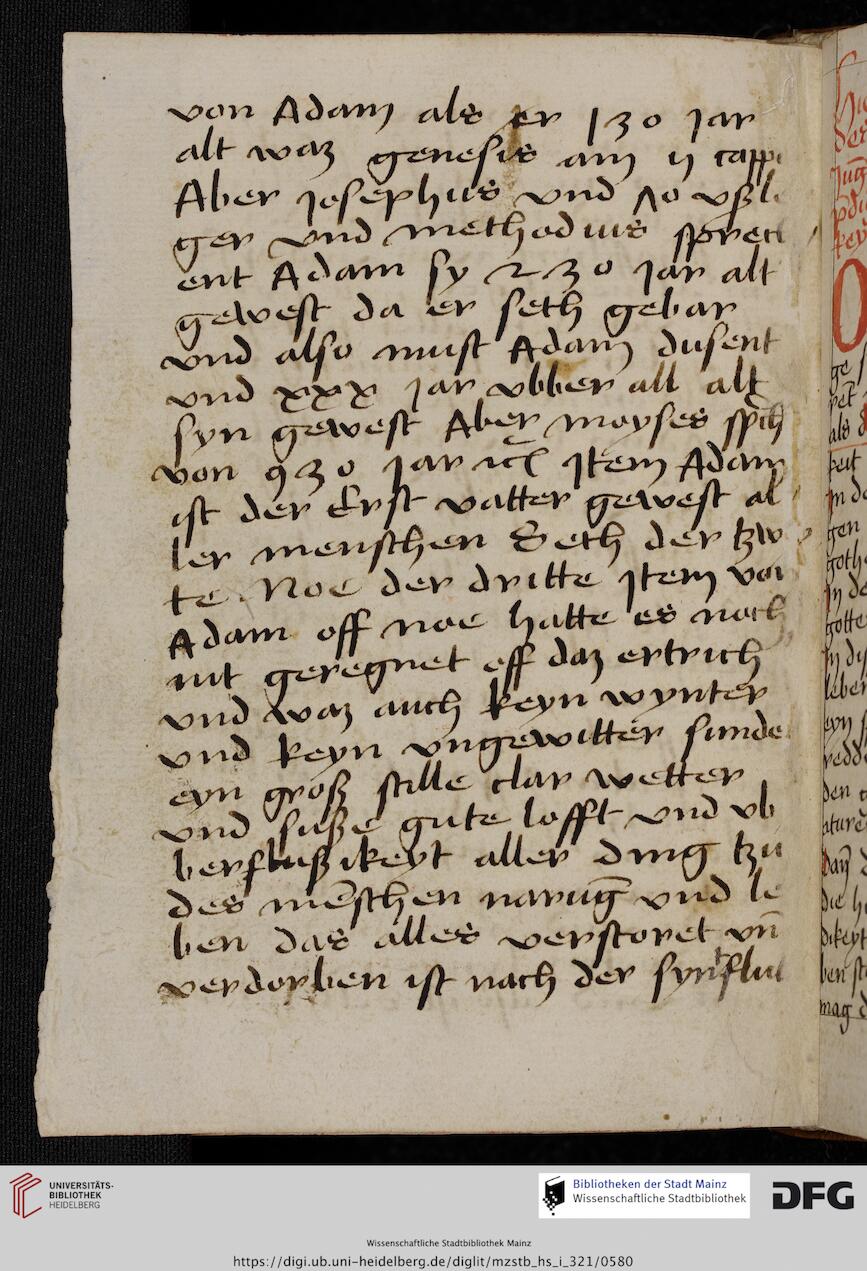 von Adam als er 130 jar
alt waz genesis am ij cappi
Aber josephus vnd 70 vßle
ger vnd methodius sprech
ent Adam sy 230 jar alt
gewest da er seth gebar
vnd also must Adam dusent
vnd xxx jar vbber all alt
syn gewest Aber moyses spch
von 930 jar Item Adam
ist der Erst vatter gewest al
ler menschen Seth der tzw
te Noe der dritte Item von
Adam off noe hatte es noch
nit geregnet off daz ertrich
vnd waz auch keyn wynter
vnd keyn vngewitter sunder
eyn groß stille clar wetter
vnd suße gute lofft vnd vb
berflußikeyt aller ding tzu
des mēschen narūg vnd le
ben das alles verstoret vn̄
verdorben ist nach der syntflut
UNIVERSITÄTS-
BIBLIOTHEK
HEIDELBERG
Bibliotheken der Stadt Mainz
Wissenschaftliche Stadtbibliothek
DFG
Wissenschaftliche Stadtbibliothek Mainz
https://digi.ub.uni-heidelberg.de/diglit/mzstb_hs_i_321/0580